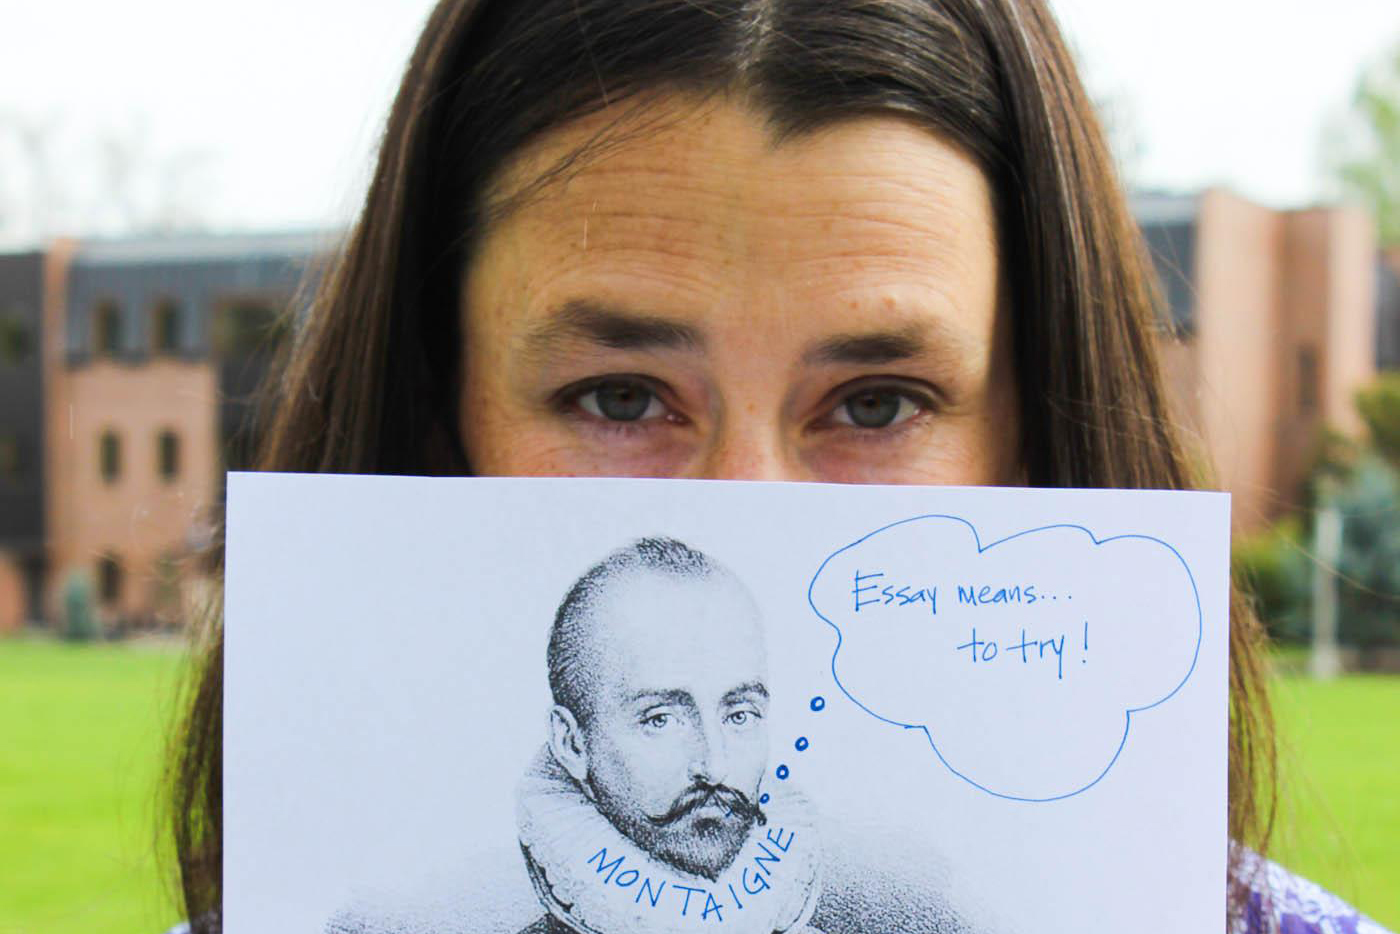 Essay means...
to try!
MONTAIGNE